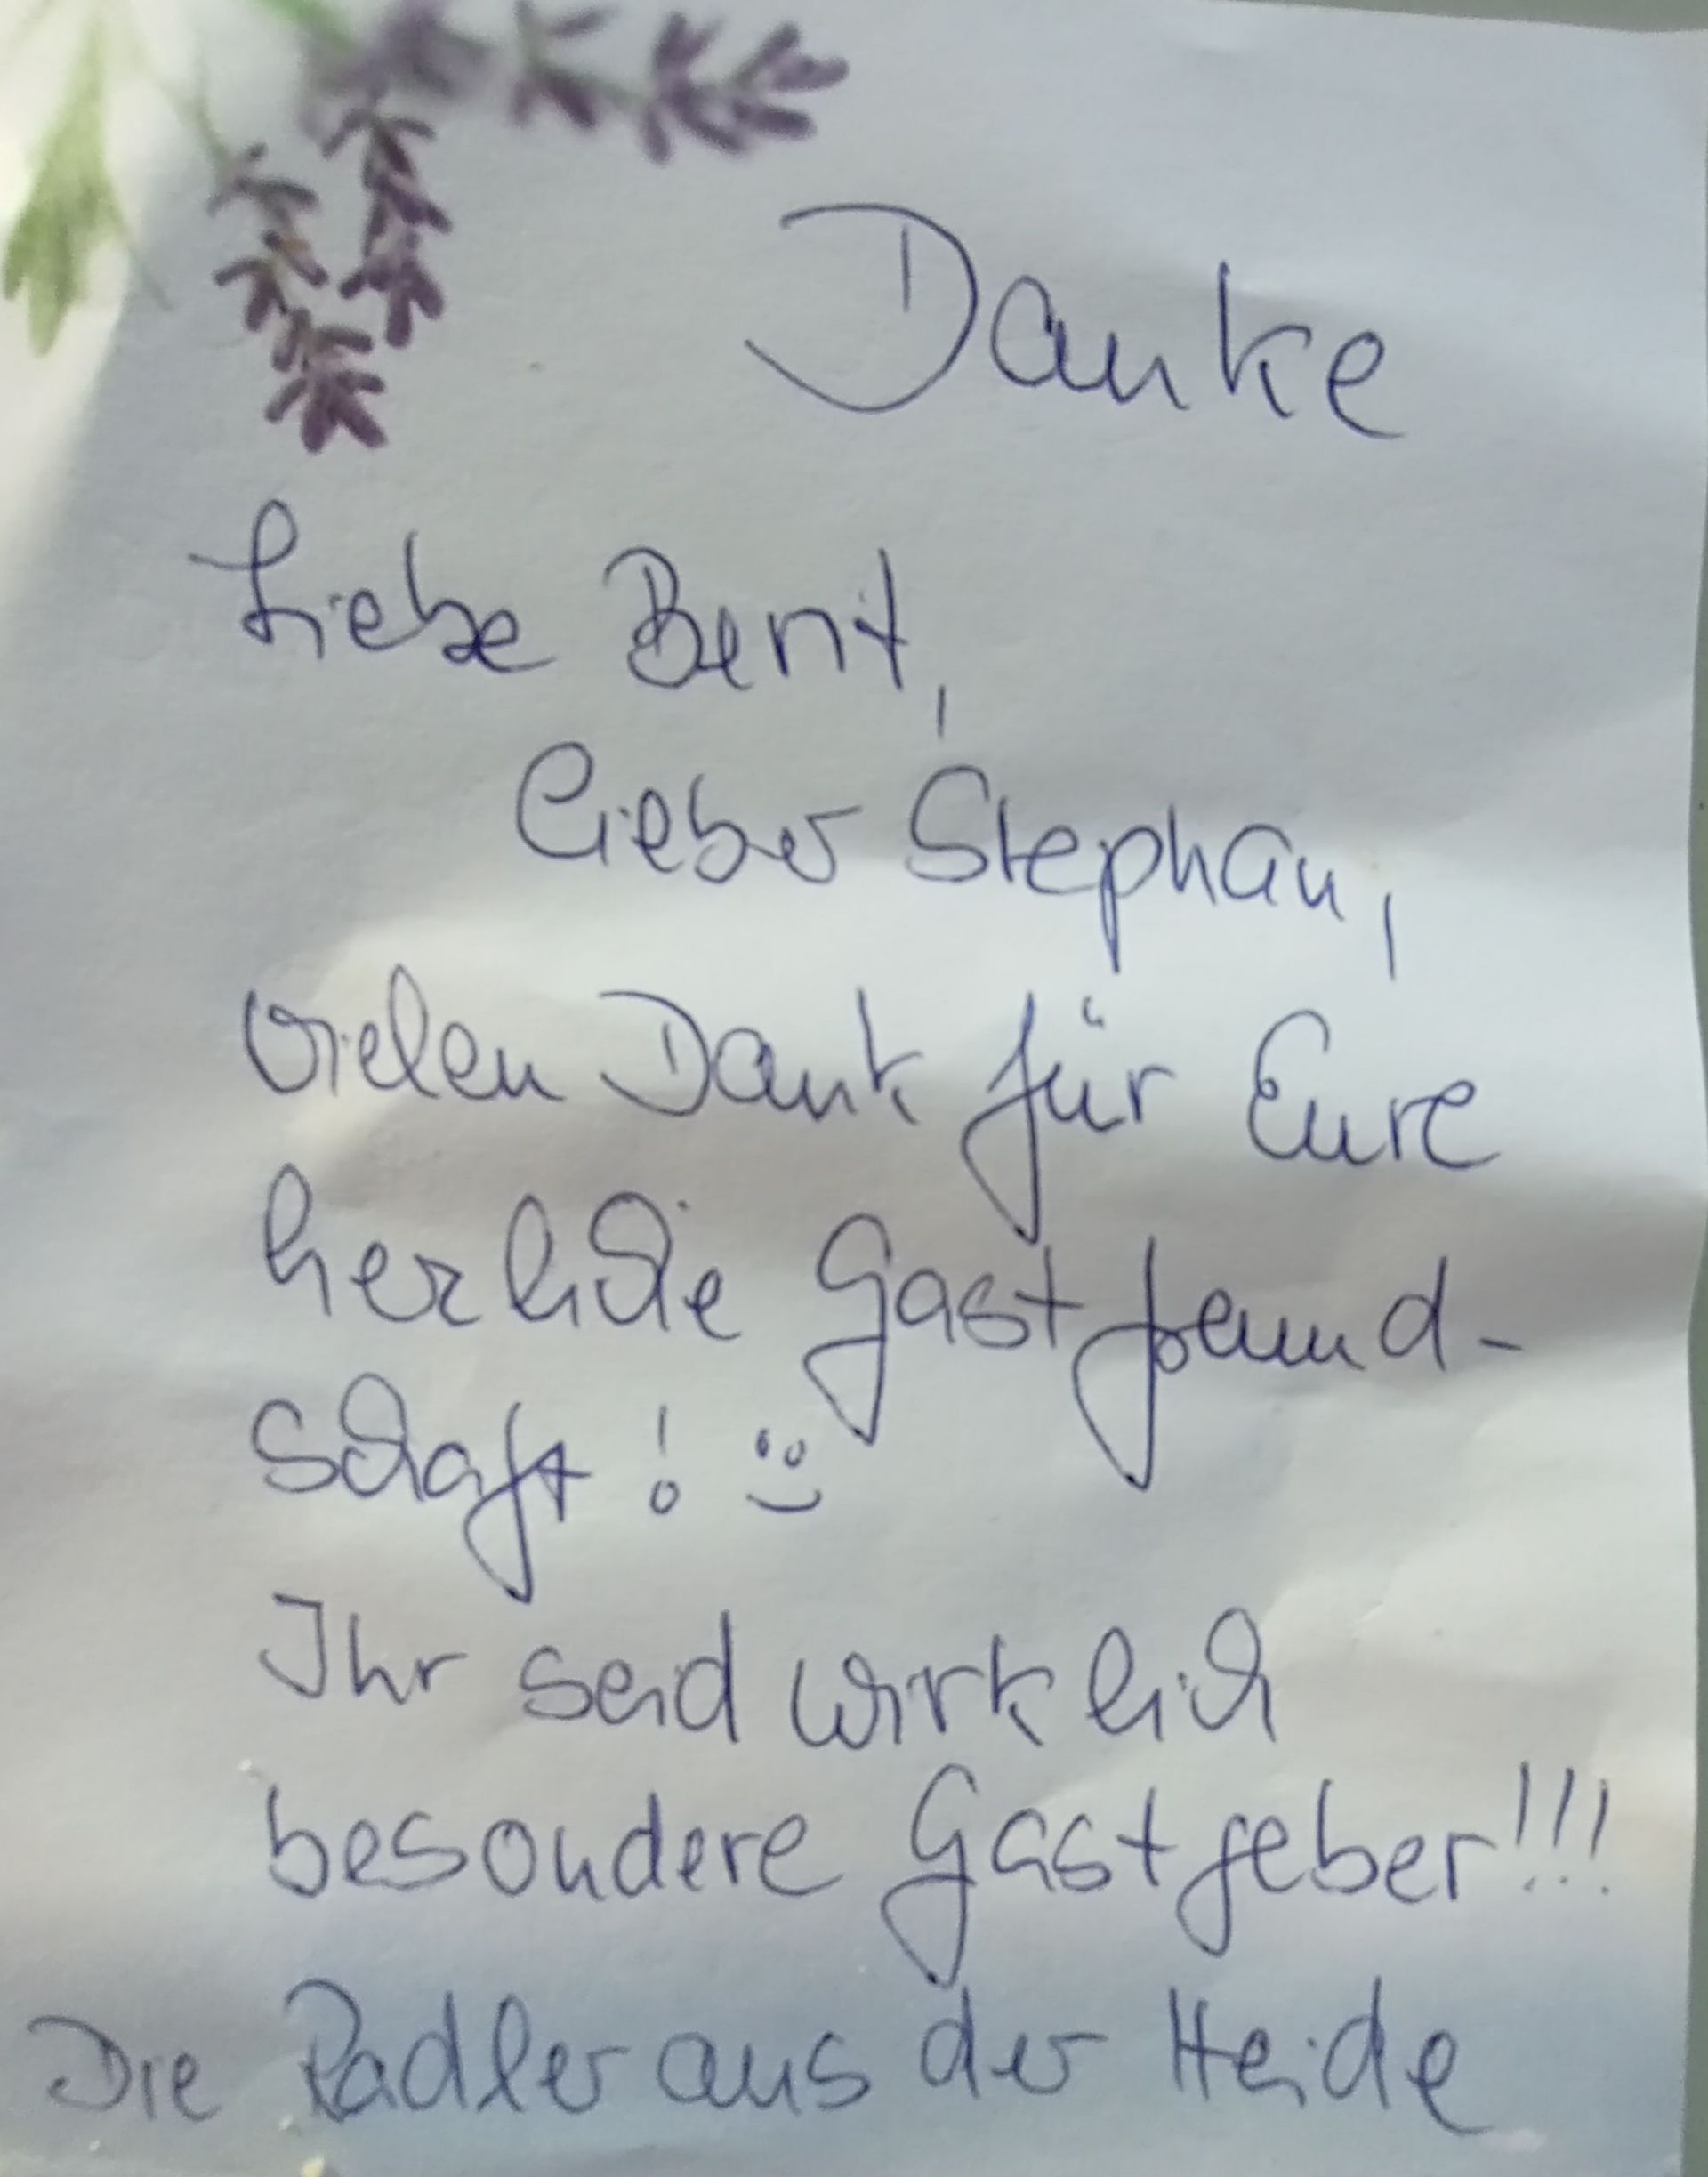 Danke
Liebe Berit,
lieber Stephan,
vielen Dank für Eure
herzliche Gastfreund-
schaft! :)
Ihr seid wirklich
besondere Gastgeber!!!
Die Radler aus der Heide